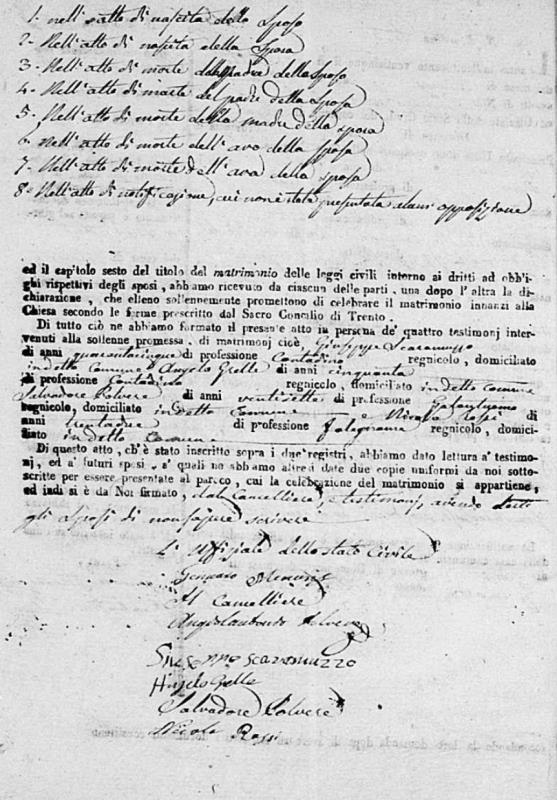 1. nell'atto di nascita dello Sposo
2- Nell'atto di nascita della Sposa
3- Nell'atto di morte del padre dello Sposo
4- Nell'atto di morte del padre della Sposa
5- Nell'atto di morte della madre della Sposa
6- Nell'atto di morte dell'avo della Sposa
7- Nell'atto di morte dell'ava della Sposa
8- Nell'atto di notificazione, cui non è stata presentata alcuna opposizione
ed il capitolo sesto del titolo del matrimonio delle leggi civili intorno ai dritti ad obbli-
ghi rispettivi degli sposi, abbiamo ricevuto da ciascuna delle parti, una dopo l'altra la di-
chiarazione, che elleno sollennemente promettono di celebrare il matrimonio innanzi alla
Chiesa secondo le forme prescritto dal Sacro Concilio di Trento.
Di tutto ciò ne abbiamo formato il presente atto in persona de' quattro testimonj inter-
venuti alla sollenne promessa. di matrimonj cioè, Giuseppe Scaramuzzo
di anni quarantacinque di professione Contadino regnicolo, domiciliato
in detto Comune Angelo Grelle di anni cinquanta
di professione Contadino regnicolo, domiciliato in detto Comune
Salvadore Polvere di anni ventisette di professione
regnicolo, domiciliato in detto Comune e Nicola Rossi di
anni trentadue di professione Falegname regnicolo, domici-
liato in detto Comune
Di questo atto, ch'è stato inscritto sopra i due registri, abbiamo dato lettura a' testimo-
nj, ed a' futuri sposi, a' quali ne abbiamo altresì date due copie uniformi da noi sotto-
scritte per essere presentate al parroco, cui la celebrazione del matrimonio si appartiene,
ed indi si è da Noi firmato, dal Cancelliere, e testimonj avendo detto
gli Sposi di non sapere scrivere
L'Uffiziale dello Stato Civile
Gennaro
Il Cancelliere
Angelantonio Polvere
Giuseppe Scaramuzzo
Angelo Grelle
Salvadore Polvere
Nicola Rossi